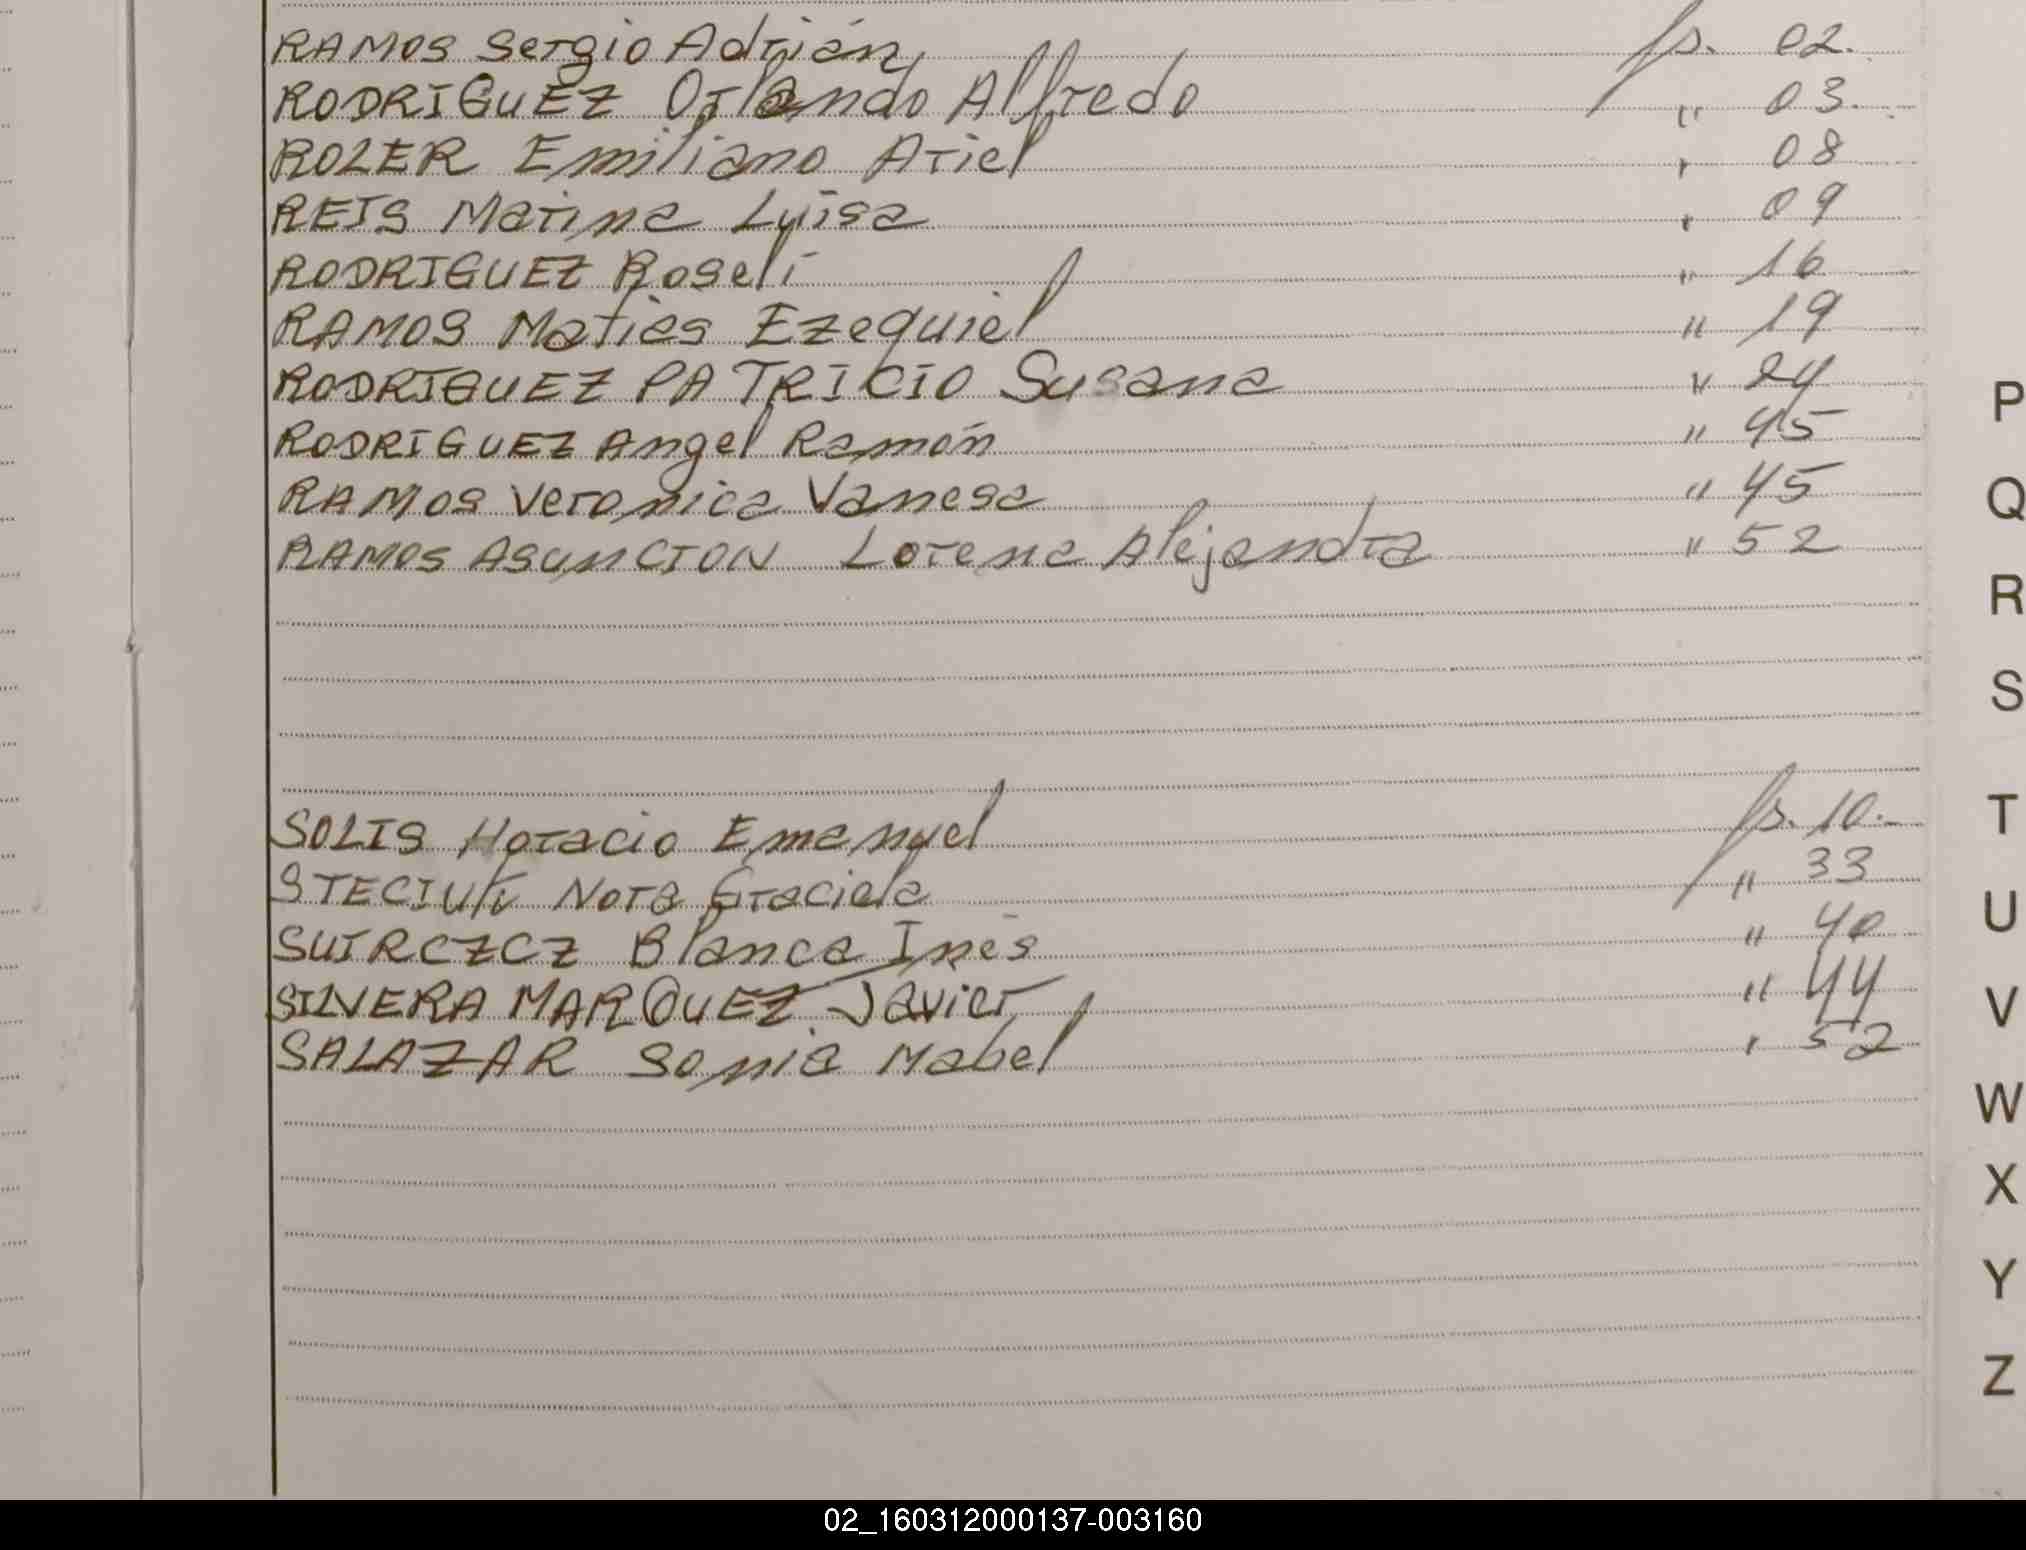 RAMOS Sergio Adrián fs. 02.
RODRIGUEZ Orlando Alfredo " 03.
ROLER Emiliano Ariel " 08
REIS Marina Luisa " 09
RODRIGUEZ Roseli " 16
RAMOS Matias Ezequiel " 19
RODRIGUEZ PATRICIO Susana " 24
RODRIGUEZ Angel Ramón " 45
RAMOS Veronica Vanesa " 45
RAMOS ASUNCION Lorena Alejandra " 52
SOLIS Horacio Emanuel fs. 10.-
Nora Graciela " 33
SUIRCZCZ Blanca Inés " 40
SILVERA MARQUEZ Javier " 44
SALAZAR Sonia Mabel " 52
P
Q
R
S
T
U
V
W
X
Y
Z
02_160312000137-003160